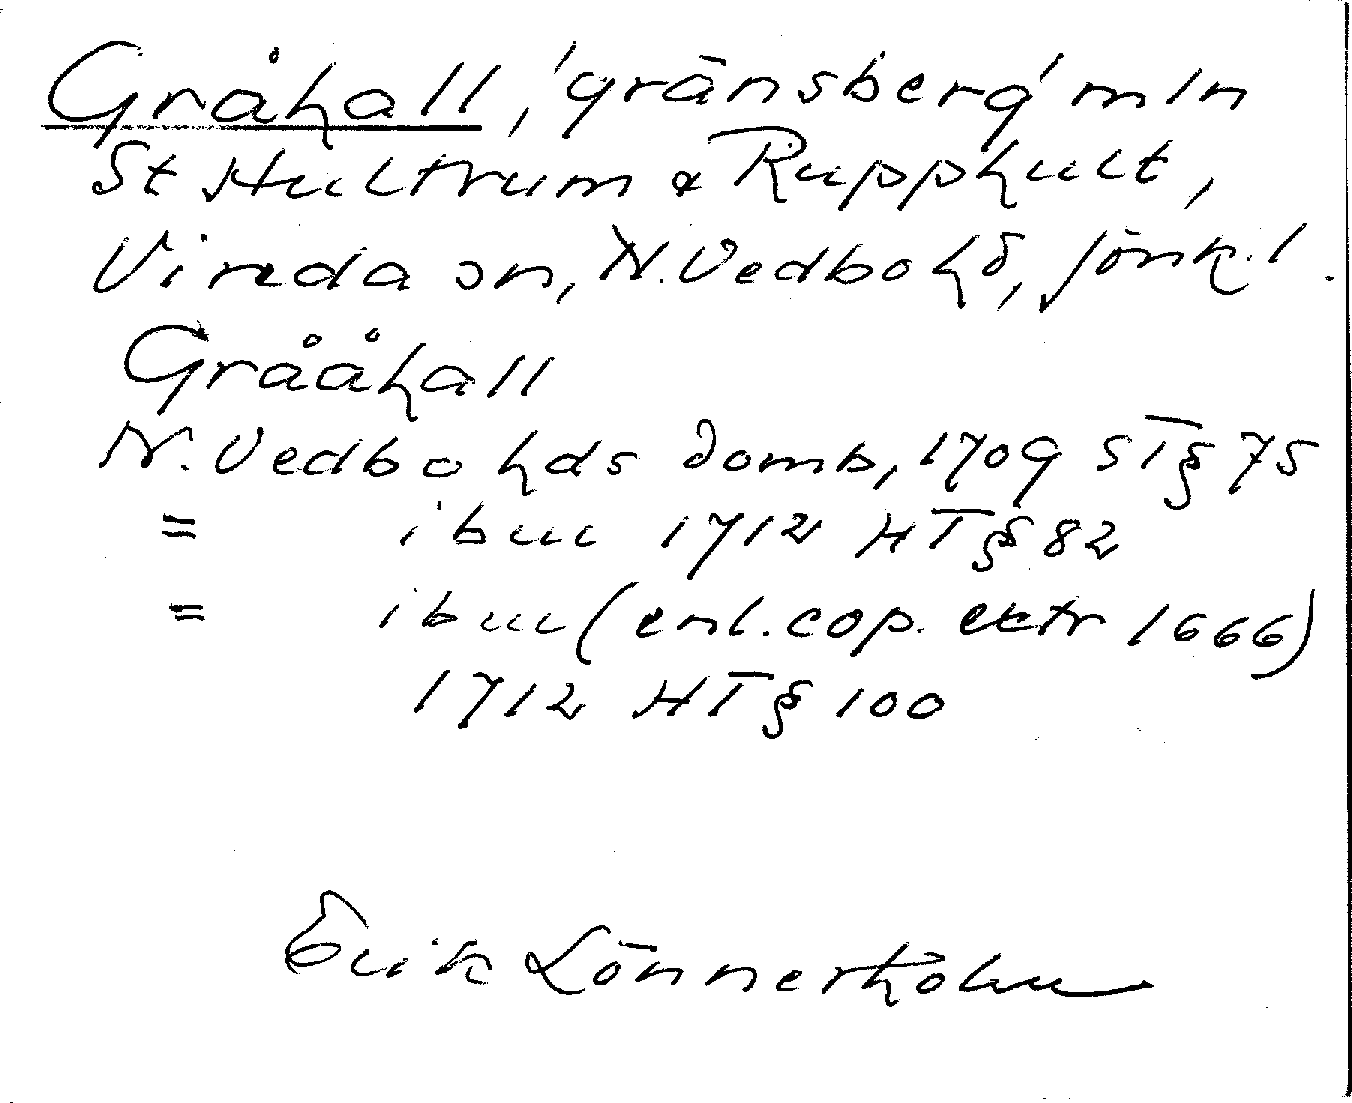 Gråhall, 'gränsberg' mln
St Hultrum & Rupphult,
Vireda sn, N. Vedbo hd, Jönk. l.
Grååhall
N. Vedbo hds domb, 1709 ST § 75
= ibm 1712 HT § 82
= ibm (enl. cop. extr 1666)
1712 HT § 100
Erik Lönnerholm